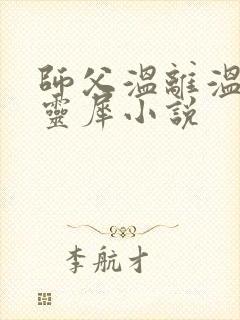 師父溫離溫
靈犀小說
李航才